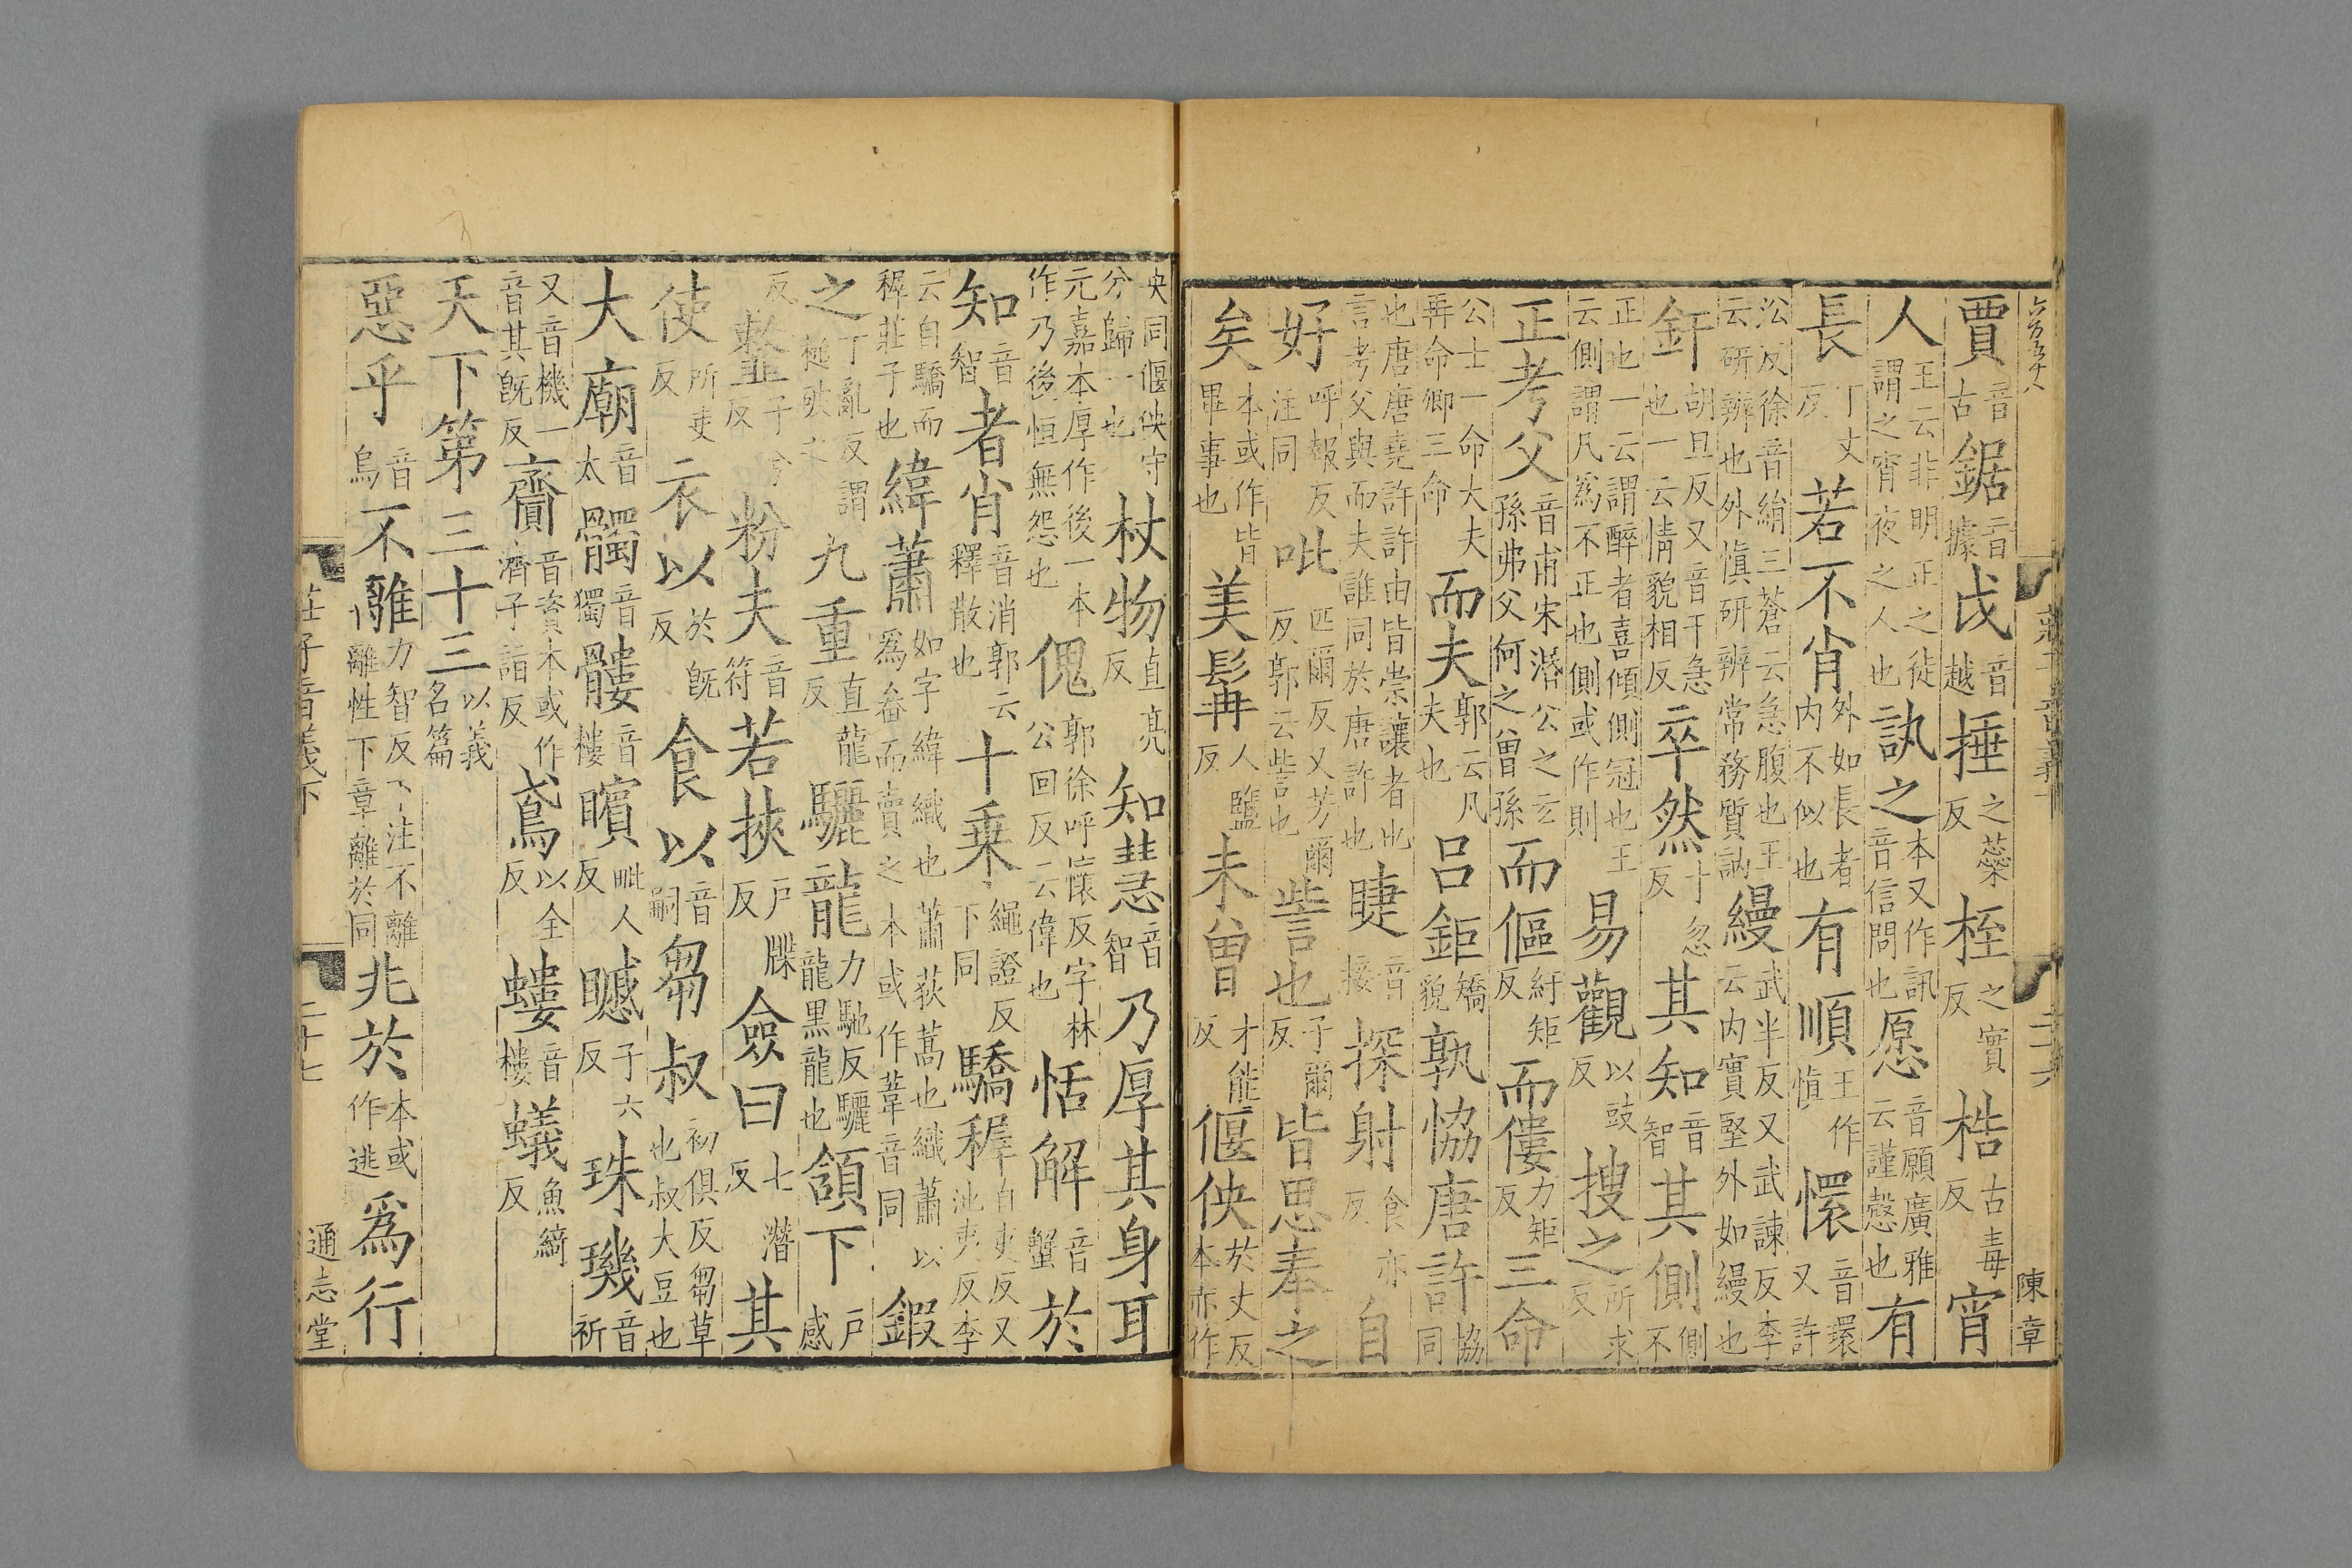 六百五十八 莊子音義下 二十六 陳章
賈音古鋸音據戉音越捶之蘂反桎之實反梏古毒反宵
人王云非明正之徒謂之宵夜之人也訙之本又作訊音信問也愿音願廣雅云謹慤也有
長丁丈反若不肖外如長者内不似也有順王作愼懁音環又許
㳂反徐音絹三蒼云急腹也王云研辨也外愼研辨常務質訥縵武半反又武諫反李云内實堅外如縵也
釬胡旦反又音干急也一云情貌相反卒然十忽反其知音智其側側不
正也一云謂醉者喜傾側冠也王云側謂凡爲不正也側或作則易觀以豉反搜之所求反
正考父音甫宋湣公之玄孫弗父何之曾孫而傴紆矩反而僂力矩反三命
公士一命大夫再命卿三命而夫郭云凡夫也呂鉅矯貌孰恊唐許協同
也唐唐堯許許由皆崇讓者也言考父與而夫誰同於唐許也睫音接探射食亦反自
好呼報反注同吡匹爾反又芳爾反郭云訾也訾也子爾反皆思奉之
矣本或作皆畢事也美髯人鹽反未曾才能反偃佒於丈反本亦作
央同偃佒守分歸一也杖物直亮反知慧音智乃厚其身耳
元嘉本厚作後一本作乃後恒無怨也傀郭徐呼懷反字林公回反云偉也恬解音蟹於
知音智者肖音消郭云釋散也十乗繩證反下同驕穉自夷反又池夷反李
云自驕而穉莊子也緯蕭如字緯織也蕭荻蒿也織蕭以爲畚而賣之本或作葦音同鍜
之丁亂反謂搥破之九重直龍反驪龍力馳反驪龍黒龍也頷下戶感
反韲子兮反粉夫音符若挾戶牒反僉曰七潛反其
使所吏反衣以於旣反食以音嗣芻叔初俱反芻草也叔大豆也
大廟音太髑音獨髏音樓矉毗人反顣子六反珠璣音祈
又音機一音其旣反齎音資本或作濟子詣反鳶以全反螻音樓蟻魚綺反
天下第三十三以義名篇
惡乎音烏不離力智反下注不離離性下章離於同兆於本或作逃爲行
莊子音義下 二十七 通志堂